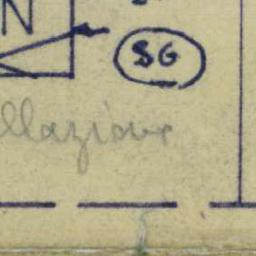 N
SG
llazione